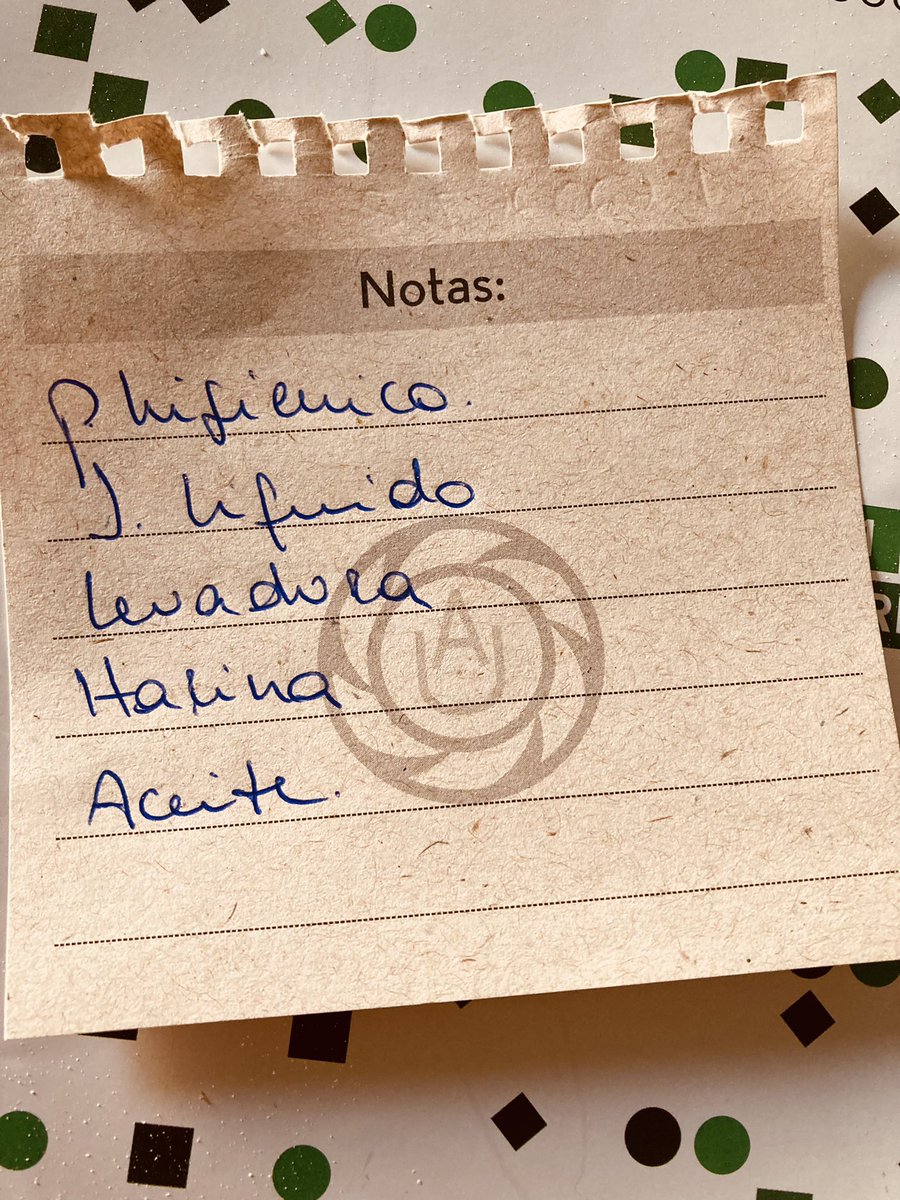 Notas:
p higienico.
J. liquido
levadura
Harina
Aceite.
UAU